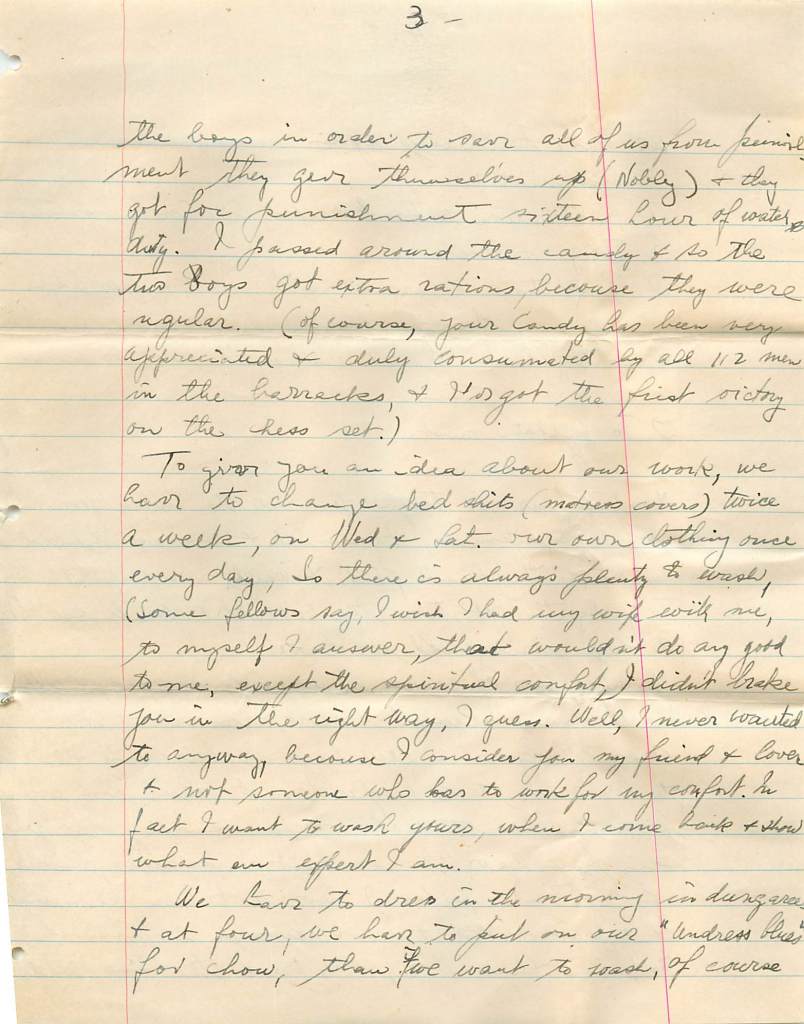 3 -
the boys in order to save all of us from punish
ment they gave themselves up (Nobly) & they
got for punishment sixteen hour of water
duty. I passed around the candy & so the
two Boys got extra rations, because they were
regular. (Of course, your Candy has been very
appreciated & duly consumated by all 112 men
in the barracks, & I've got the first victory
on the chess set.)
To give you an idea about our work, we
have to change bed shits (matress covers) twice
a week, on Wed & Sat. our own clothing once
every day, So there is always plenty to wash,
(Some fellows say, I wish I had my wife with me,
to myself I answer, that wouldn't do any good
to me, except the spiritual comfort, I didn't brake
you in the right way, I guess. Well, I never wanted
to anyway, because I consider you my friend & lover
& not someone who has to work for my comfort. In
fact I want to wash yours, when I come back & show
what an expert I am.
We have to dress in the morning in dungarees
& at four, we have to put on our "Undress blues"
for chow, than if we want to wash, of course